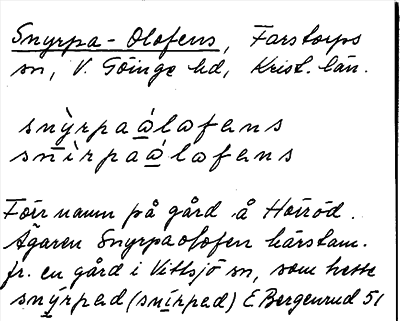 Snyrpa-Olofens, Farstorps
sn, V. Göinge hd, Krist. län.
snỳrpaálofens
snìrpaálofens
Förr namn på gård å Horröd.
Ägaren Snyrpaolofen härstam.
fr. en gård i Vittsjö sn, som hette
snýrped (snírped) E. Bergenrud 51